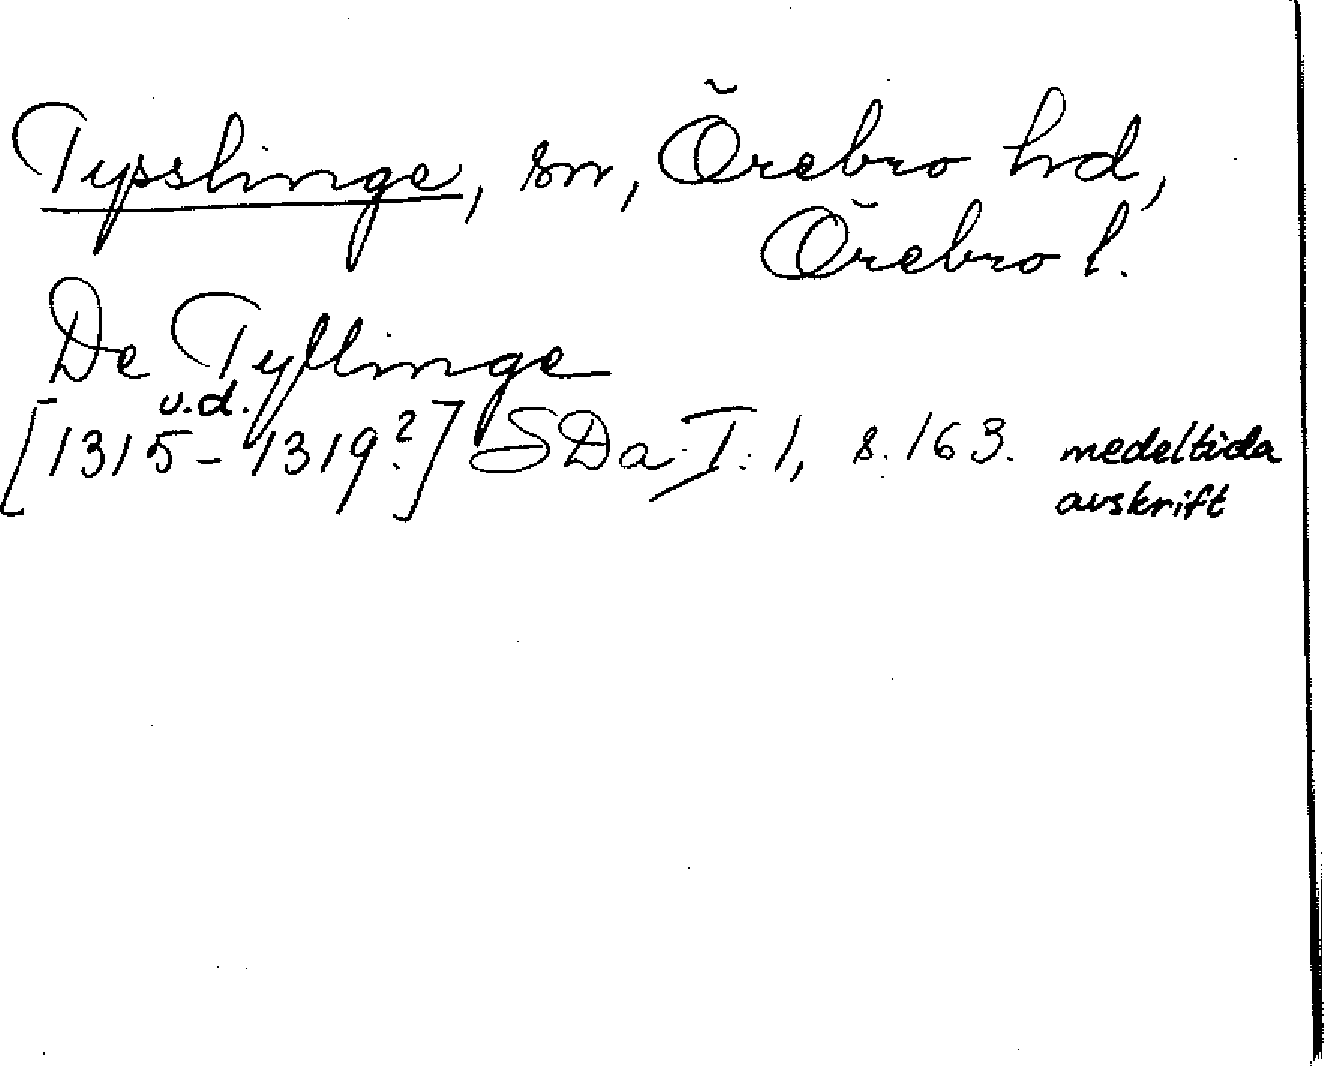 Tysslinge, sn, Örebro hd,
Örebro l.
De Tyslinge
u.d.
[1315-1319?] SDa I:1, s. 163. medeltida
avskrift